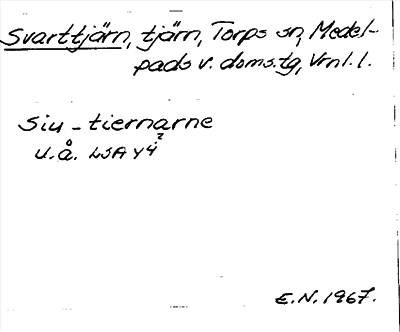 Svarttjärn, tjärn, Torps sn, Medel-
pads v. doms.tg, Vrnl. l.
Siu - tiernarne
u. å. LSA Y4²
E.N. 1967.